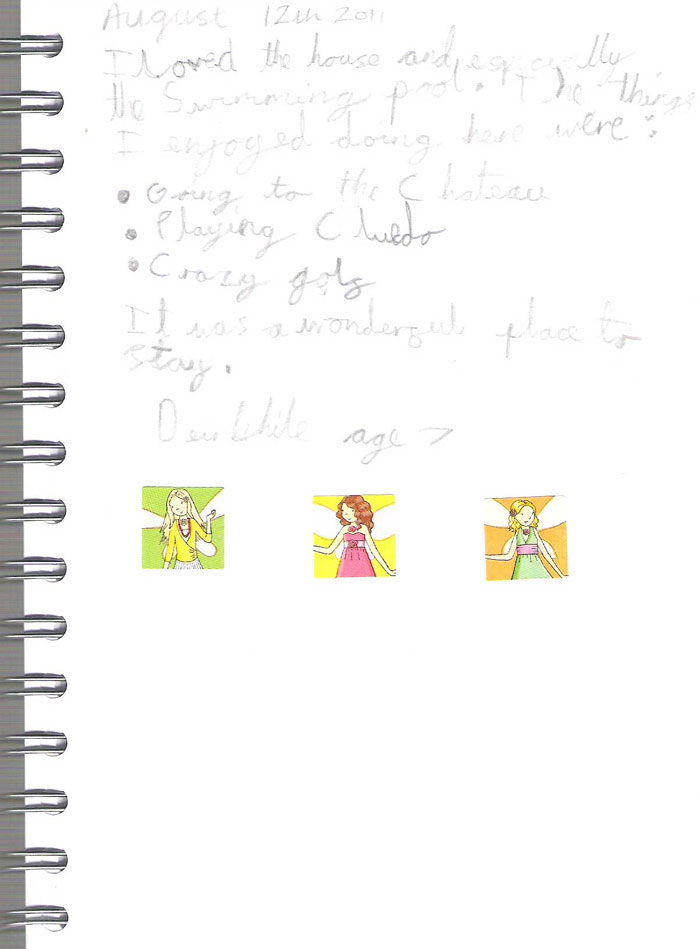 August 12th 2011
I loved the house and especially
the Swimming pool. The things
I enjoyed doing here were:
• Going to the Chateau
• Playing Cluedo
• Crazy golf
It was a wonderful place to
stay.
age 7